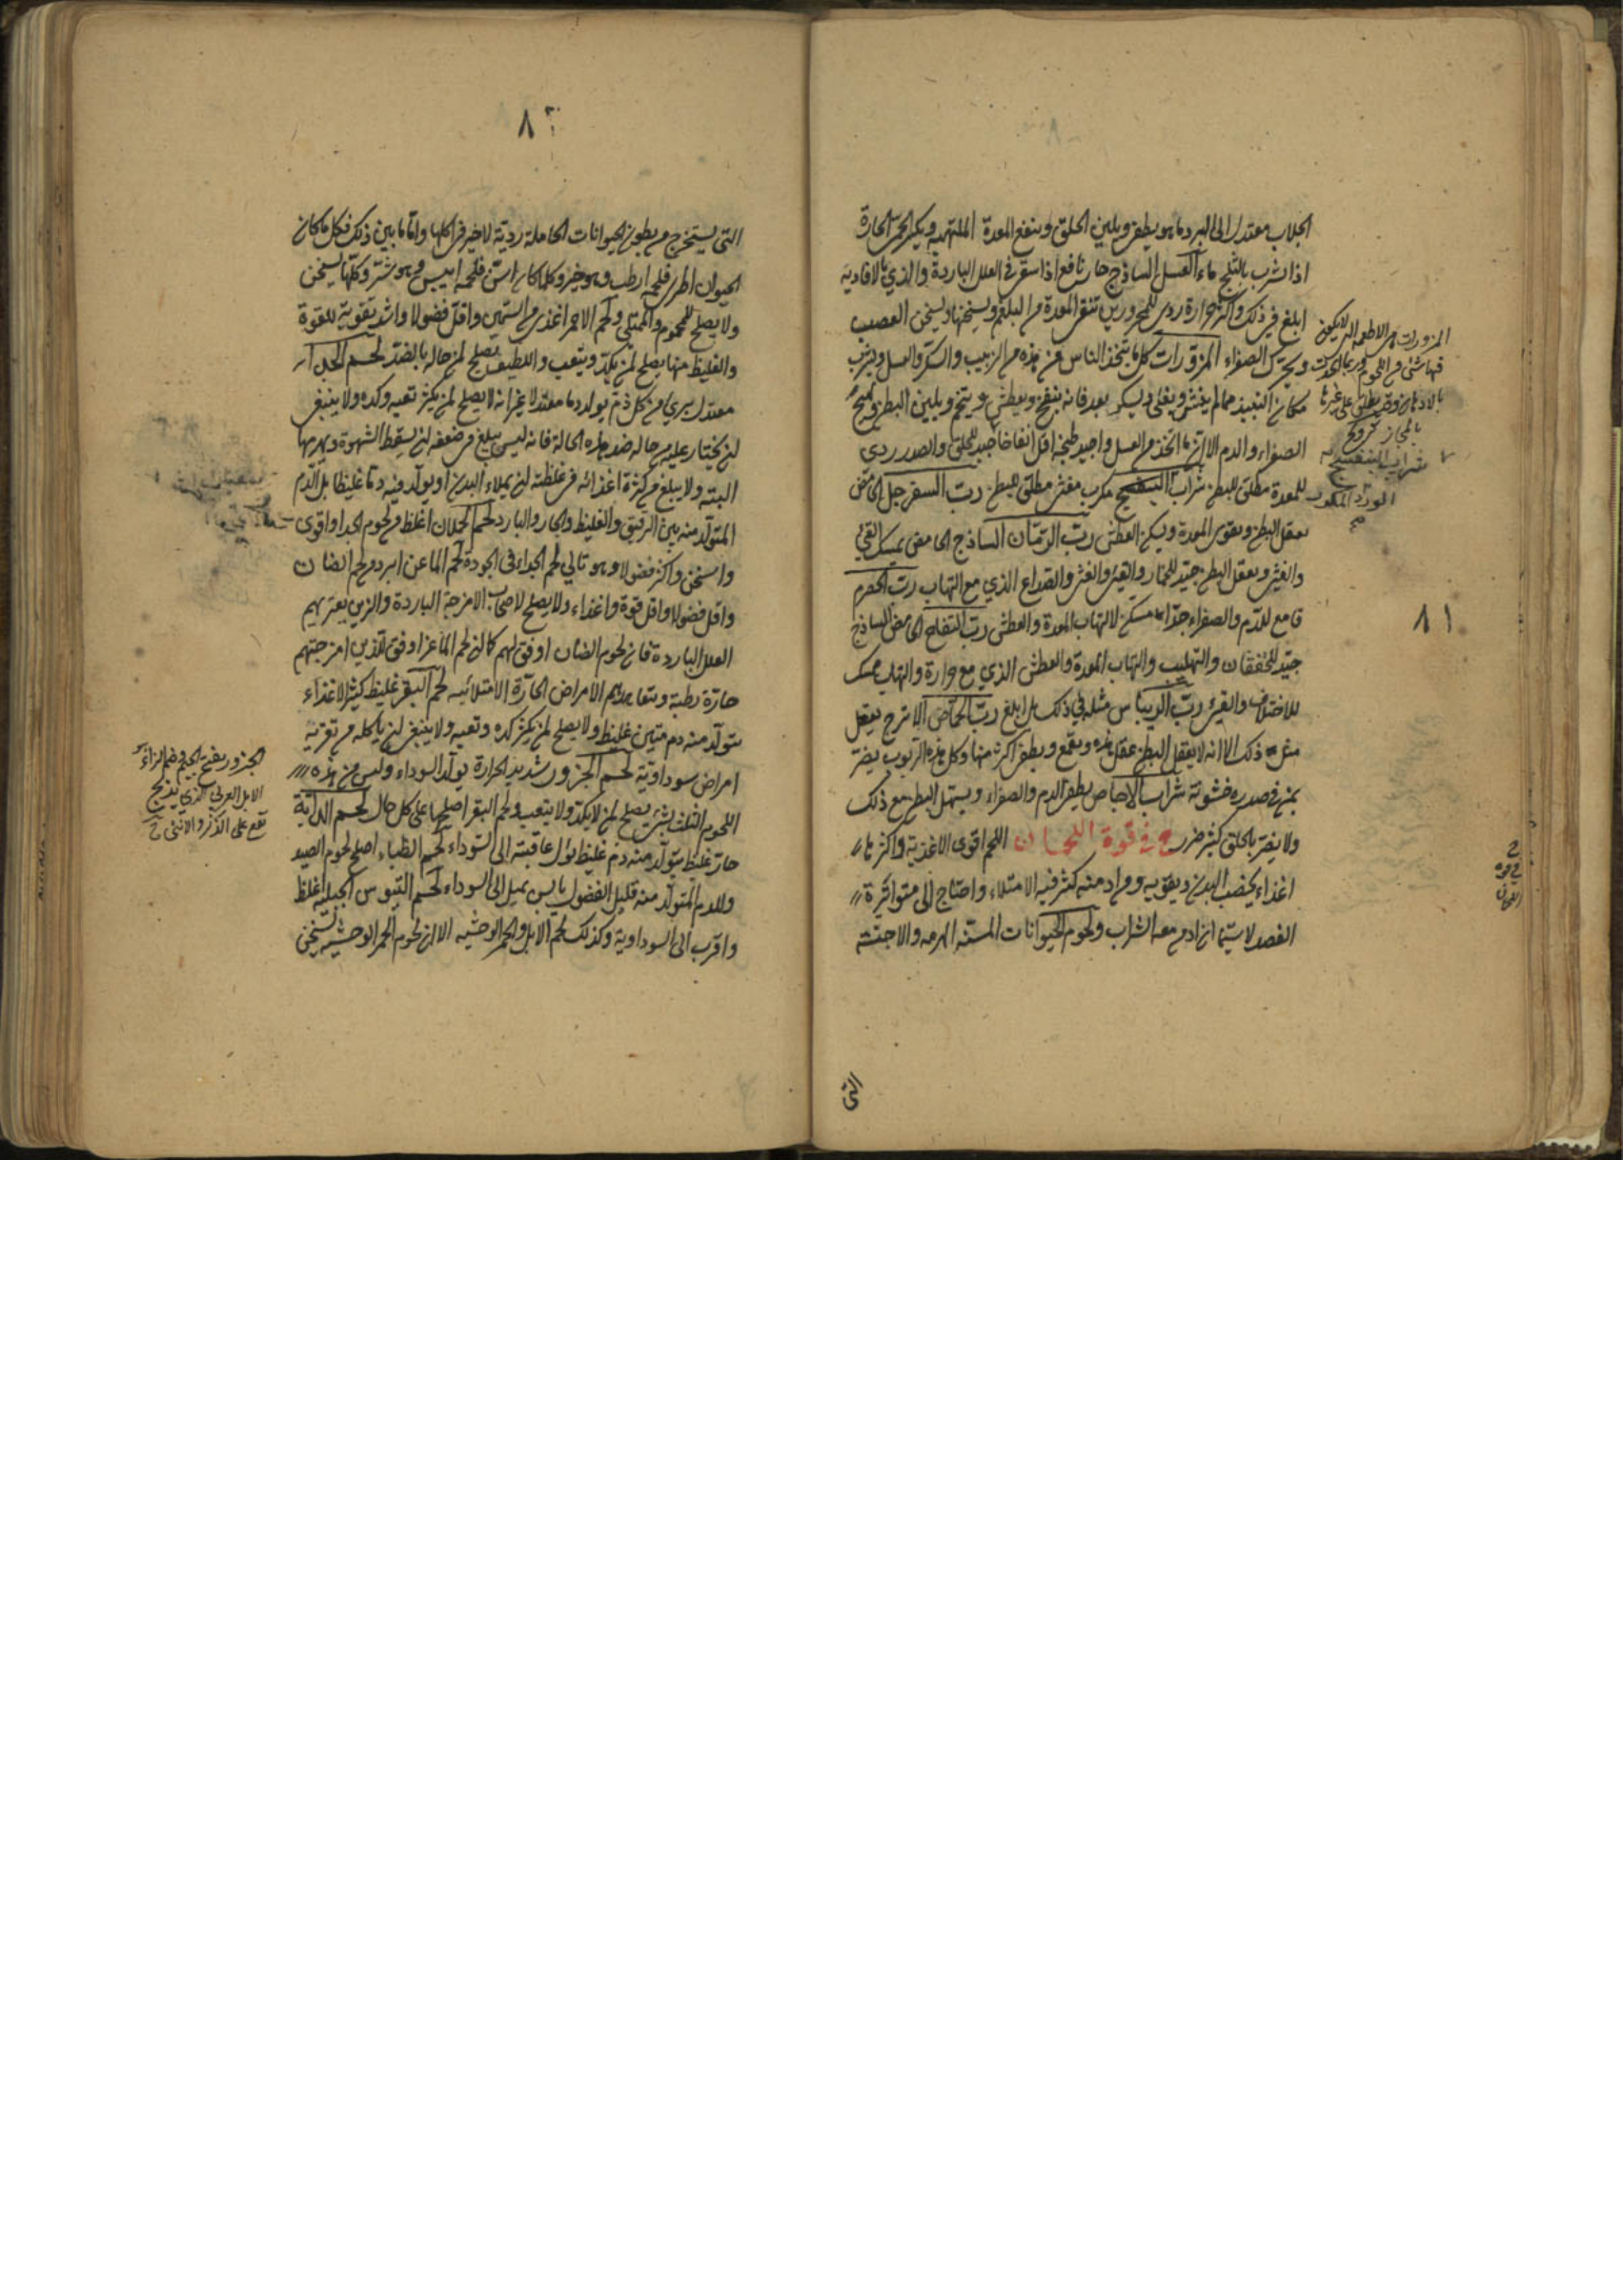 ٨١
الجلاب معتدل الى البرد ما هو يطفئ ويلين الحلق وينفع المعدة الملتهبة ويسكن الحمى الحارة
اذا شرب بالثلج ماء العسل الساذج حار نافع اذا سقي في العلل الباردة والذي بالافاويه
ابلغ في ذلك واكثر حرارة ردى للمحرورين تنقى المعدة من البلغم ويسخنها ويسخن العصب
ويحرك الصفراء المزورات كل ما يتخذ الناس من هذه من الزبيب والسكر والعسل ويشرب
مكان النبيذ مما لم ينش ويغلى ويسكر بعد فانه ينفخ ويعطش ويتخم ويلين البطن ويهيج
الصفراء والدم الا ان ما اتخذ من العسل واجيد طبخه اقل انفاخا جيد للحلق والصدر ردى
للمعدة مطلق للبطن شراب البنفسج مكرب مغثى مطلق للبطن رب السفرجل الحامض
يعقل البطن ويقوى المعدة ويسكن العطش رب الرمان الساذج الحامض يمسك القئ
والغثى ويعقل البطن جيد للخمار والقئ والغثى والصداع الذي مع التهاب رب الحصرم
قامع للدم والصفراء جدا مسكن لالتهاب المعدة والعطش رب التفاح الحامض الساذج
جيد للخفقان والتهليب والتهاب المعدة والعطش الذي مع حرارة والتهاب يمسك
للاختلاف والقئ رب الريباس مثله في ذلك بل ابلغ رب الحماض الاترج يفعل
مثل ذلك الا انه لا يعقل البطن عقل هذه ويقمع ويطفئ اكثر منها وكل هذه الربوب يضر
بمن في صدره خشونة شراب الاجاص يطفئ الدم والصفراء ويسهل البطن مع ذلك
ولا يضر بالحلق كثير ضرر ح في قوة اللحمان اللحم اقوى الاغذية واكثرها
اغذاء يخصب البدن ويقويه ومن ادمنه كثر فيه الامتلاء واحتاج الى متواترة
الفصد لا سيما ان ادمن معه الشراب ولحوم الحيوانات المسنة الهرمه والاجنة
التى
المزورات هي الاطعمه التى لا يكون
فيها شئ من اللحوم
بالادهان وقد يطلق على غيرها
بالمجاز
شراب البنفسج
الورد المكرر
ح
في قوة
اللحمان
٨٢
التى يستخرج من بطون الحيوانات الحاملة ردية لا خير في اكلها واما ما بين ذلك فكل ما كان
الحيوان اطرى فلحمه ارطب وهو خير وكلما كان اسن فلحمه ايبس وهو شر وكلها يسخن
ولا يصلح للمحموم والممتلى ولحم الاحمر اغذى من السمين واقل فضولا واشد تقوية للقوة
والغليظ منها يصلح لمن يكد ويتعب واللطيف يصلح لمن حاله بالضد لحم الجداء
معتدل بري من كل ذم يولد دما معتدلا غير انه لا يصلح لمن يكثر تعبه وكده ولا ينبغى
ان يختار عليه من حاله ضد هذه الحالة فانه ليس يبلغ من ضعفه ان يسقط الشهوة ويهزلها
البته ولا يبلغ من كثرة اغذائه فى غلظته ان يملاء البدن او يولد فيه دما غليظا بل الدم
المتولد منه بين الرقيق والغليظ والحار والبارد لحم الحملان اغلظ من لحوم الجدا واقوى
واسخن واكثر فضولا وهو تالي لحم الجداء فى الجودة لحم الماعز ابرد من لحم الضان
واقل فضولا واقل قوة واغذاء ولا يصلح لاصحاب الامزجة الباردة والذين يعتريهم
العلل الباردة فان لحوم الضان اوفق لهم كما ان لحم الماعز اوفق للذين امزجتهم
حارة رطبة ويتعاهدهم الامراض الحارة الامتلائيه لحم البقر غليظ كثير الاغذاء
يتولد منه دم متين غليظ ولا يصلح لمن لم يكثر كده وتعبه ولا ينبغى ان ياكله من تعتريه
امراض سوداوية لحم الجزور شديد الحرارة يولد السوداء وليس من هذه
اللحوم الثلث بشئ يصلح لمن لا يكد ولا يتعب ولحم البقر اصلحها على كل حال لحم
حار غليظ يتولد منه دم غليظ يؤل عاقبته الى السوداء لحم الظباء اصلح لحوم الصيد
والدم المتولد منه قليل الفضول يابس يميل الى السوداء لحم التيوس الجبلية اغلظ
واقرب الى السوداوية وكذلك لحم الابل والحمر الوحشيه الا ان لحوم الحمر الوحشيه يسخن
الجزور بفتح الجيم وضم الزاء
الابل العربي الذي يذبح
تقع على الذكر والانثى ح